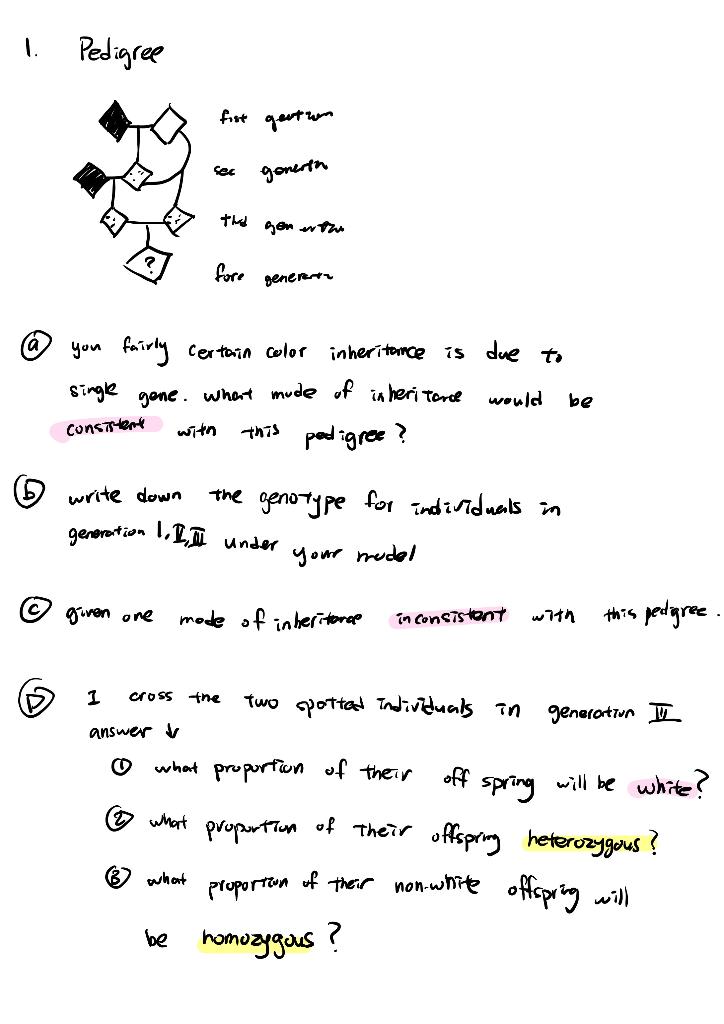 1. Pedigree
fist
sec
thd
?
ⓐ you fairly certain color inheritance is due to
single gene. what mode of inheritance would be
consistent with this pedigree?
ⓑ write down the genotype for individuals in
generation 1, II, III under your model
ⓒ given one mode of inheritance inconsistent with this pedigree.
Ⓓ I cross the two spotted individuals in generation III
answer ↓
① what proportion of their off spring will be white?
② what proportion of their offspring heterozygous?
③ what proportion of their non-white offspring will
be homozygous?